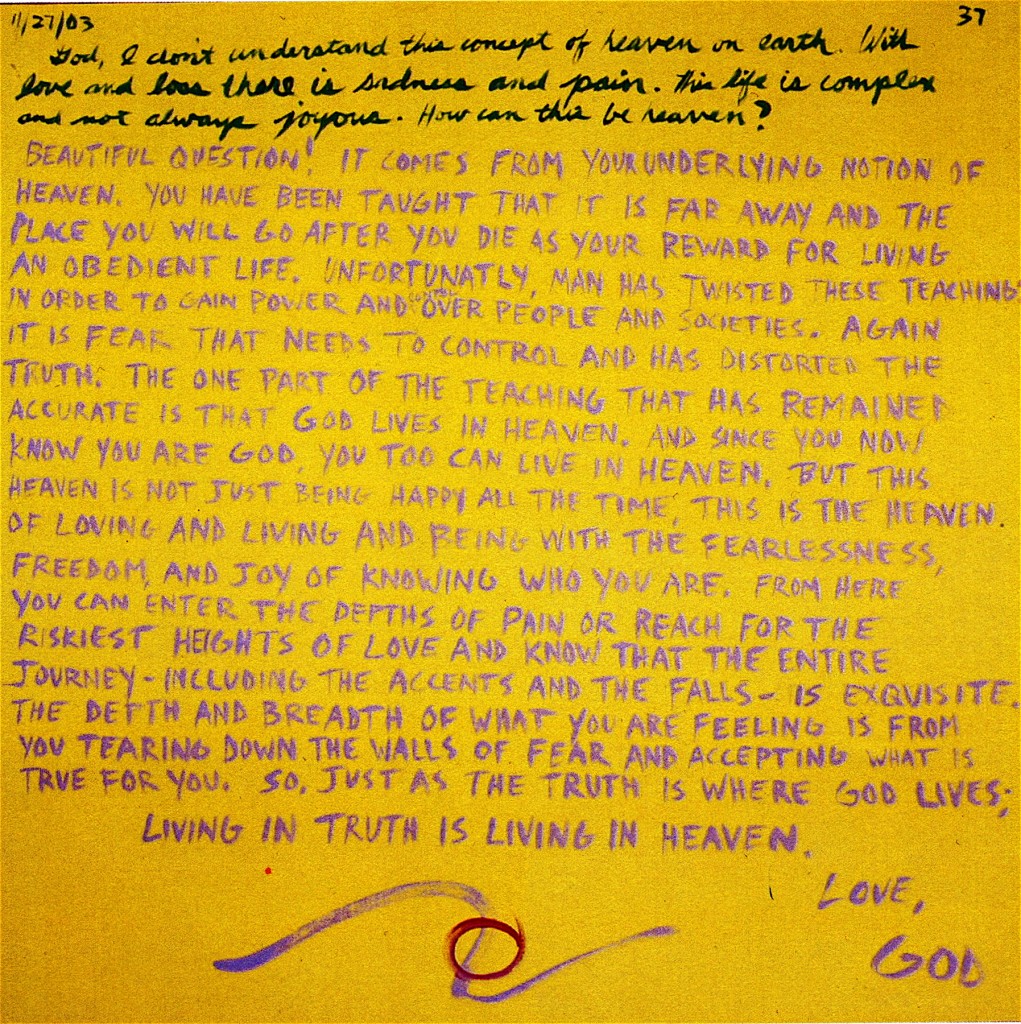 11/27/03
37
God, I don't understand this concept of heaven on earth. With
love and loss there is sadness and pain. This life is complex
and not always joyous. How can this be heaven?
BEAUTIFUL QUESTION! IT COMES FROM YOUR UNDERLYING NOTION OF
HEAVEN. YOU HAVE BEEN TAUGHT THAT IT IS FAR AWAY AND THE
PLACE YOU WILL GO AFTER YOU DIE AS YOUR REWARD FOR LIVING
AN OBEDIENT LIFE. UNFORTUNATLY, MAN HAS TWISTED THESE TEACHING
IN ORDER TO GAIN POWER AND CONTROL OVER PEOPLE AND SOCIETIES. AGAIN
IT IS FEAR THAT NEEDS TO CONTROL AND HAS DISTORTED THE
TRUTH. THE ONE PART OF THE TEACHING THAT HAS REMAINED
ACCURATE IS THAT GOD LIVES IN HEAVEN. AND SINCE YOU NOW
KNOW YOU ARE GOD, YOU TOO CAN LIVE IN HEAVEN. BUT THIS
HEAVEN IS NOT JUST BEING HAPPY ALL THE TIME, THIS IS THE HEAVEN
OF LOVING AND LIVING AND BEING WITH THE FEARLESSNESS,
FREEDOM, AND JOY OF KNOWING WHO YOU ARE. FROM HERE
YOU CAN ENTER THE DEPTHS OF PAIN OR REACH FOR THE
RISKIEST HEIGHTS OF LOVE AND KNOW THAT THE ENTIRE
JOURNEY - INCLUDING THE ACCENTS AND THE FALLS - IS EXQUISITE.
THE DETTH AND BREADTH OF WHAT YOU ARE FEELING IS FROM
YOU TEARING DOWN THE WALLS OF FEAR AND ACCEPTING WHAT IS
TRUE FOR YOU. SO, JUST AS THE TRUTH IS WHERE GOD LIVES;
LIVING IN TRUTH IS LIVING IN HEAVEN.
LOVE,
GOD